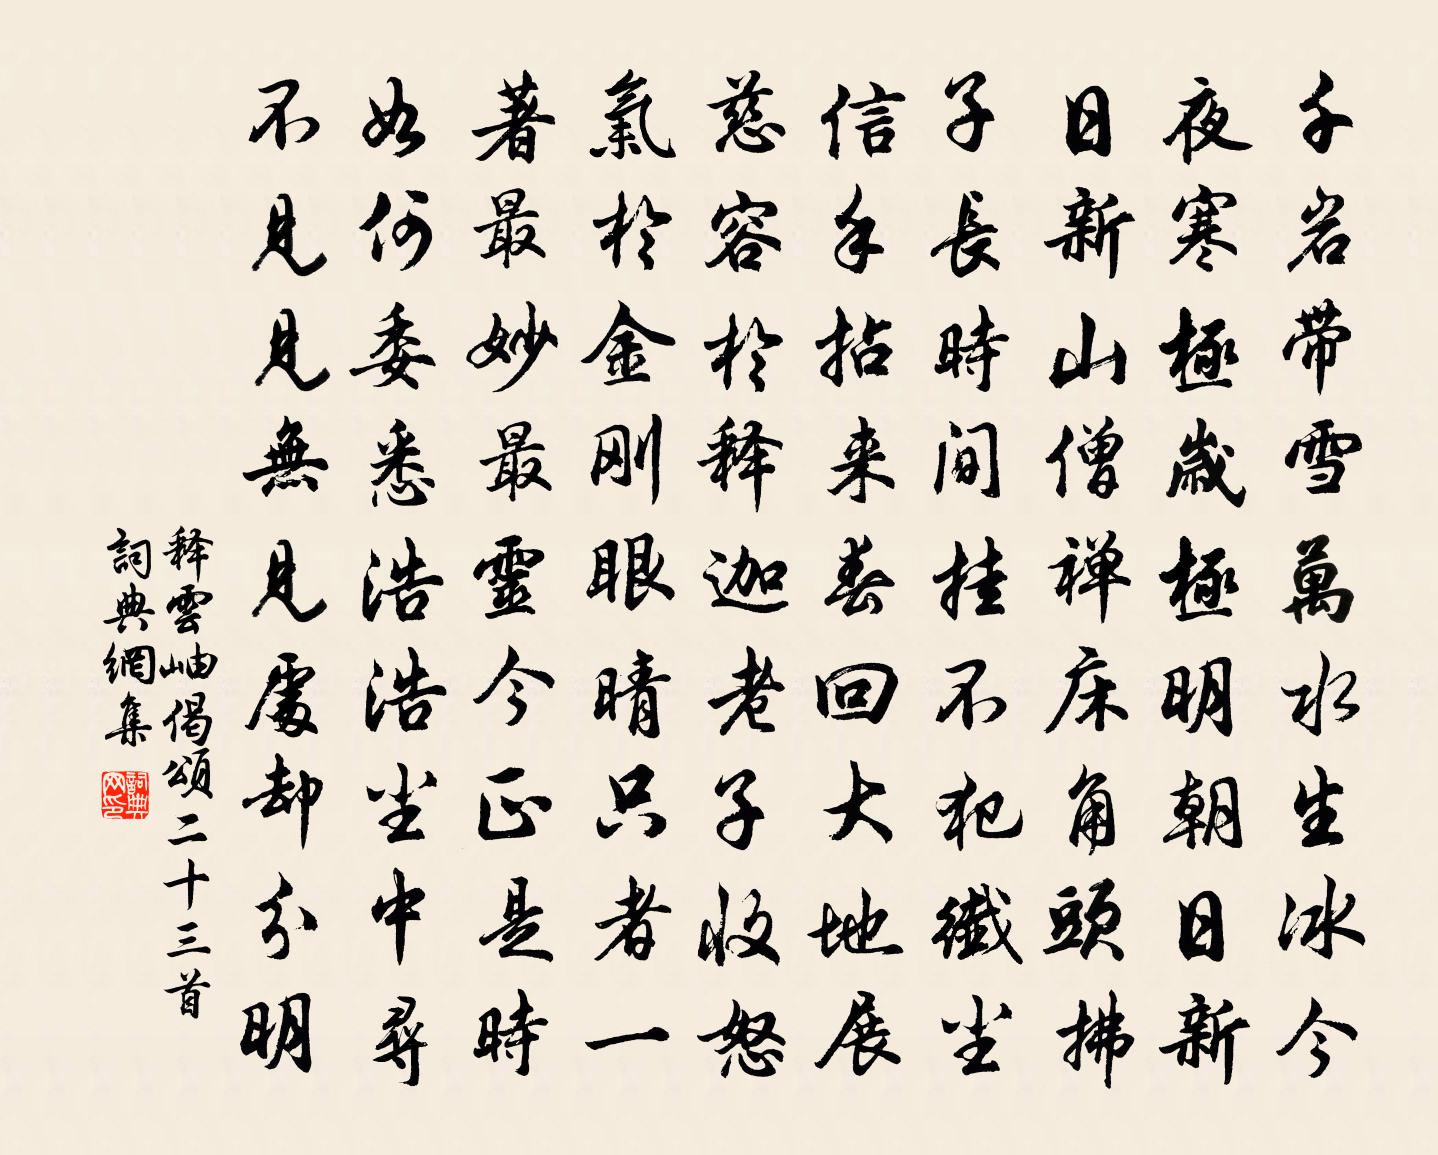 千岩带雪萬水生冰今
夜寒極歲極明朝日新
日新山僧禅床角頭拂
子長時间挂不犯纖尘
信手拈来春回大地展
慈容於释迦老子收怒
氣於金刚眼睛只者一
著最妙最靈今正是時
如何委悉浩浩尘中尋
不見見無見處却分明
释雲岫偈頌二十三首
詞典網集
詞典网印